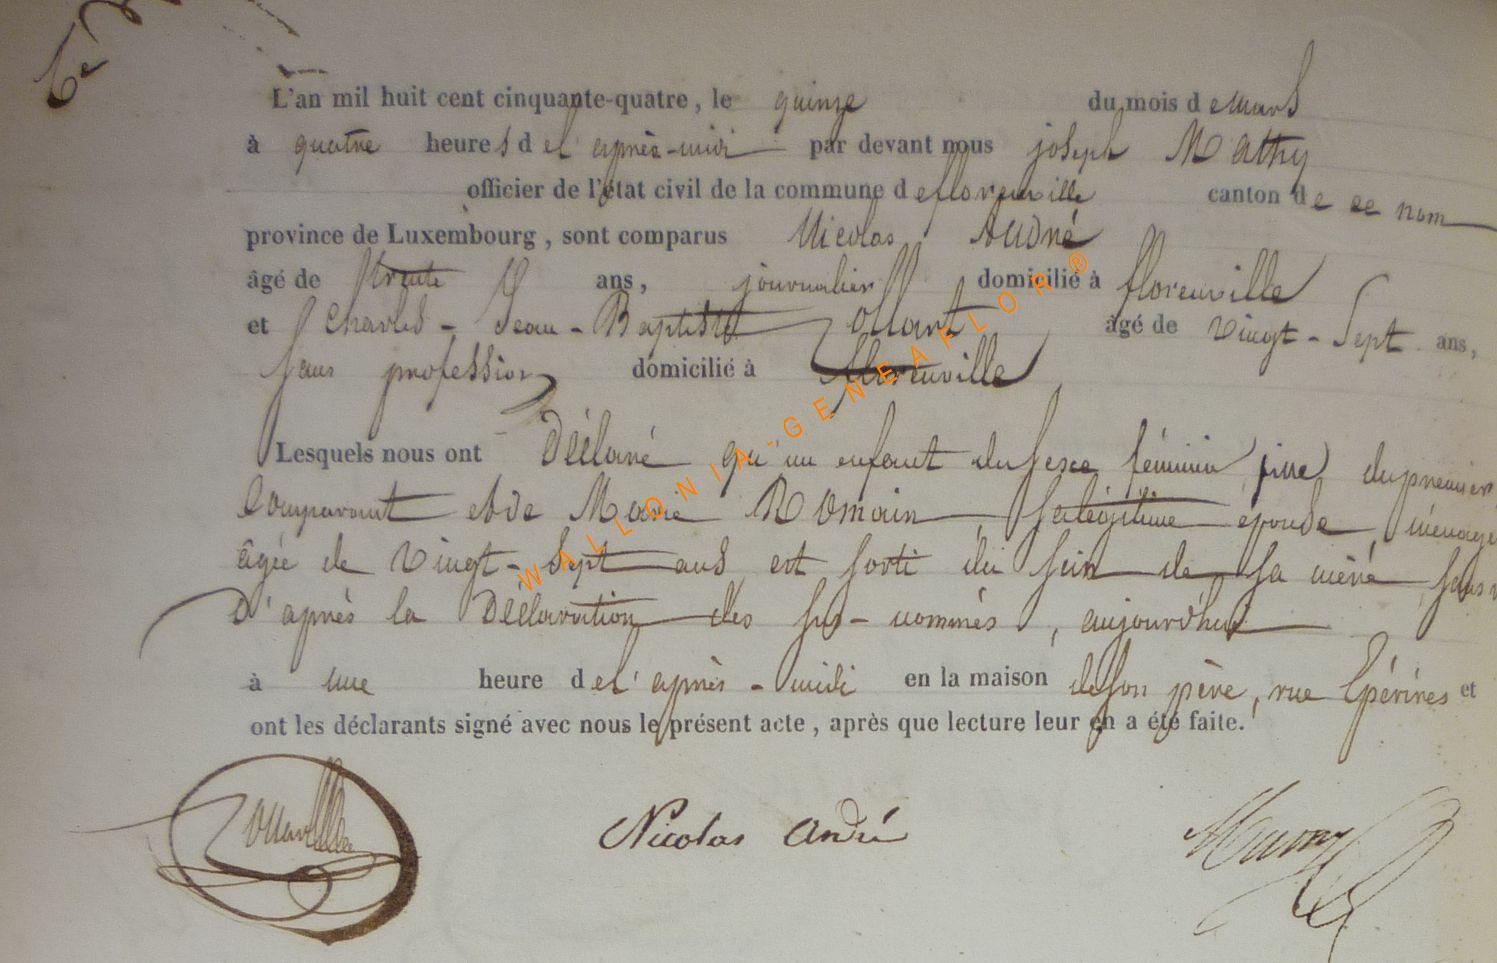 6e
L'an mil huit cent cinquante-quatre, le quinze du mois de mars
à quatre heures de l'après-midi par devant nous joseph Mathy
officier de l'état civil de la commune de florenville canton de ce nom
province de Luxembourg, sont comparus Nicolas André
âgé de trente ans, journalier domicilié à florenville
et Charles-Jean-Baptiste âgé de vingt-sept ans,
sans profession domicilié à florenville
Lesquels nous ont déclaré qu'un enfant du sexe féminin, du premier
comparant et de Marie Romain, sa légitime épouse,
âgée de vingt-sept ans, est sorti du sein de sa mère
d'après la déclaration des sus-nommés, aujourd'hui
à une heure de l'après-midi en la maison de son père, rue et
ont les déclarants signé avec nous le présent acte, après que lecture leur en a été faite.
Nicolas André
WALLONIA-GENEAFLOR®